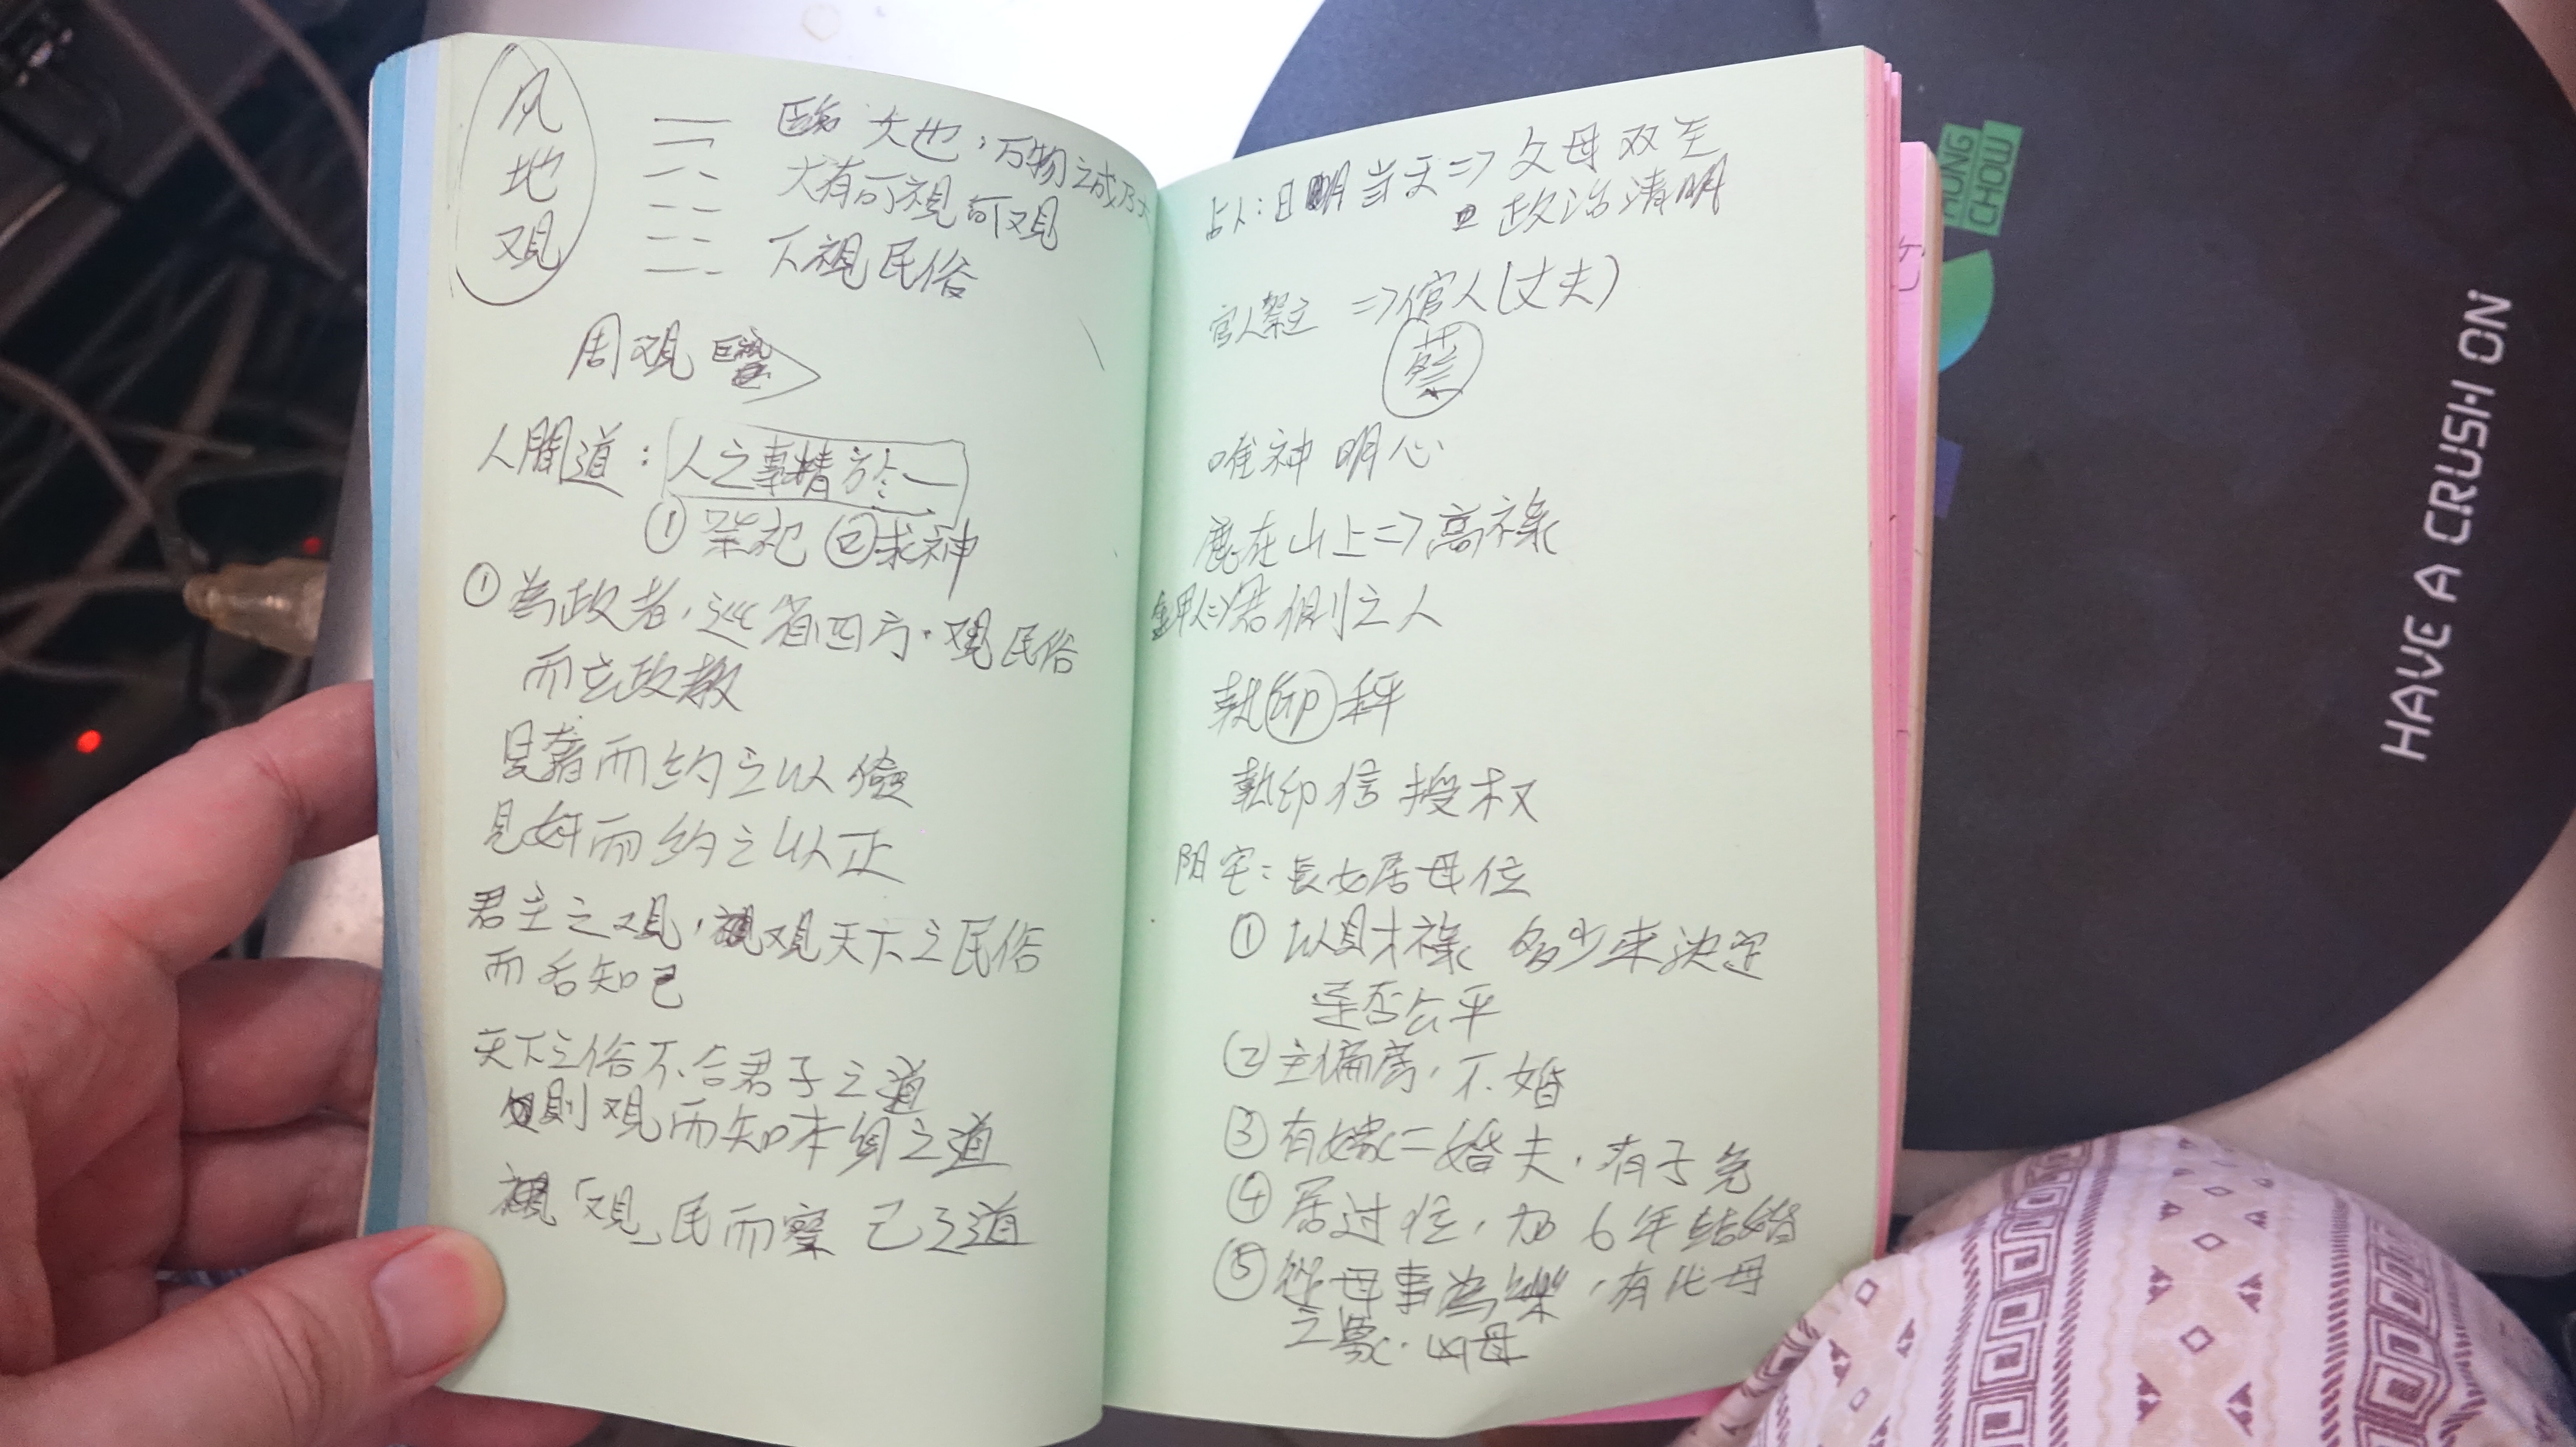 风
地
观
臨 大也，万物之成乃大
大有可視可观
下視民俗
周观
人間道：人之事精於一
①祭祀 ②求神
①為政者，巡省四方，观民俗
而立政教
見奢而約之以儉
見奸而約之以正
君主之观，观天下之民俗
而否知己
天下之俗不合君子之道
則观而知本身之道
「观」民而察己之道
占卜：日明当天=>父母双全
政治清明
官人祭立 =>倌人(丈夫)
蔡
唯神明心
鹿在山上=>高祿
金甲人=>君側之人
執印秤
執印信授权
阳宅：長女居母位
①以財祿多少來決定
是否公平
②主偏房，不婚
③有嫁二婚夫，有子免
④居过位，加6年結婚
⑤從母事為樂，有化母
之象，凶母
HONG
CHOW
HAVE A CRUSH ON